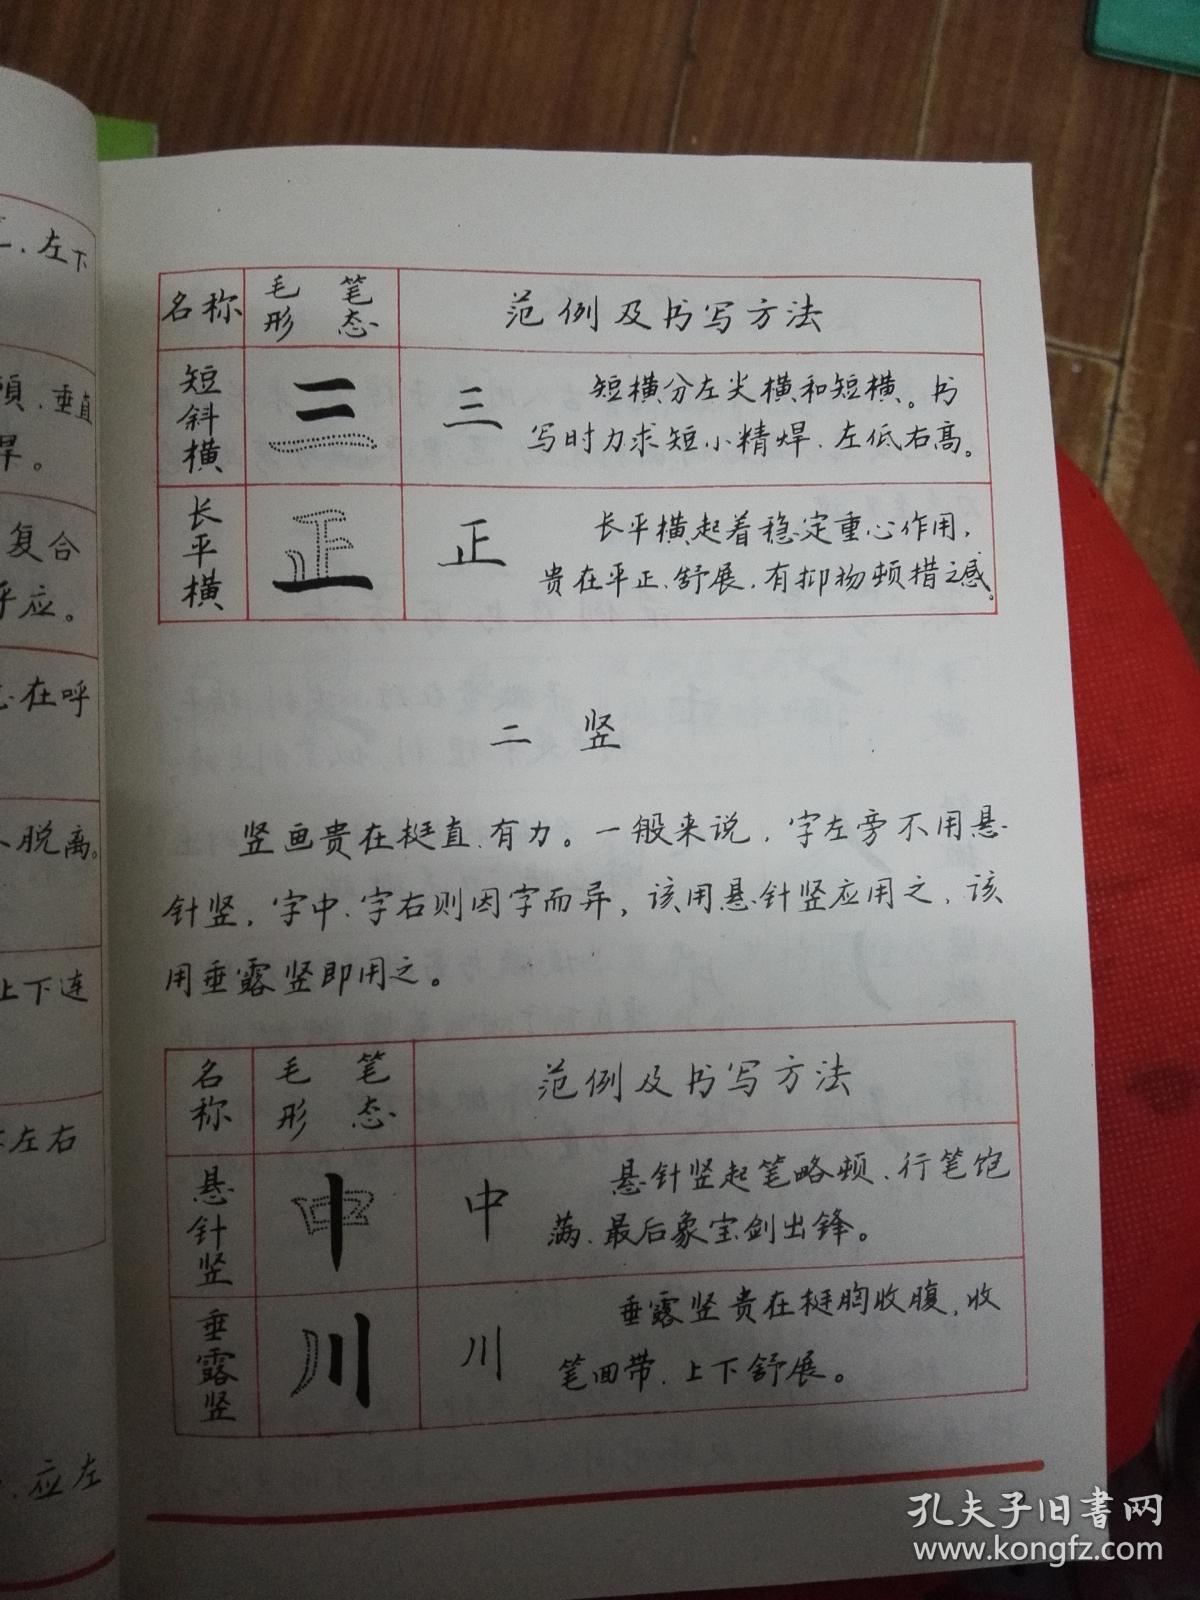 二、左下
垂直
复合
呼应。
在呼
脱离。
上下连
左右
应左
名称 毛笔形态 范例及书写方法
短斜横 三 三 短横分左尖横和短横。书
写时力求短小精焊、左低右高。
长平横 正 正 长平横起着稳定重心作用，
贵在平正、舒展，有抑扬顿措之感。
二 竖
竖画贵在挺直、有力。一般来说，字左旁不用悬
针竖，字中、字右则因字而异，该用悬针竖应用之，该
用垂露竖即用之。
名称 毛笔形态 范例及书写方法
悬针竖 中 中 悬针竖起笔略顿、行笔饱
满、最后象宝剑出锋。
垂露竖 川 川 垂露竖贵在挺胸收腹，收
笔回带、上下舒展。
孔夫子旧书网
www.kongfz.com